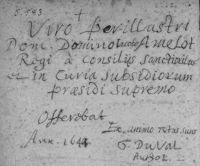 Viro perillustri
Dom. Domino Iacobo Amelot
Regi à Consiliis sanctioribus
et in Curia subsidiorum
præsidi supremo
Offerebat
Ex animo totus suus
Ann. 164
G. DuVal
Author